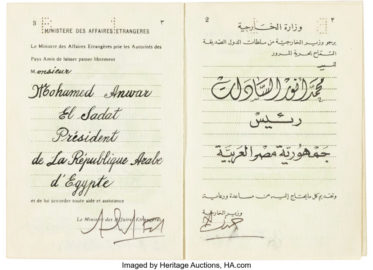 3 ٣
MINISTERE DES AFFAIRES ETRANGERES
Le Ministre des Affaires Etrangères prie les Autorités des
Pays Amis de laisser passer librement
Monsieur
Mohumed Anwar
El Sadat
Président
de La République Arabe
d'Egypte
et de lui accorder toute aide et assistance
Le Ministre des Affaires Etrangères
2 ٢
وزارة الخارجية
يرجو وزير الخارجية من سلطات الدول الصديقة
السماح بحرية المرور
السيد
محمد أنور السادات
رئيس
جمهورية مصر العربية
وتقديم كل ما يحتاج إليه من مساعدة ورعاية
وزير الخارجية
Imaged by Heritage Auctions, HA.com